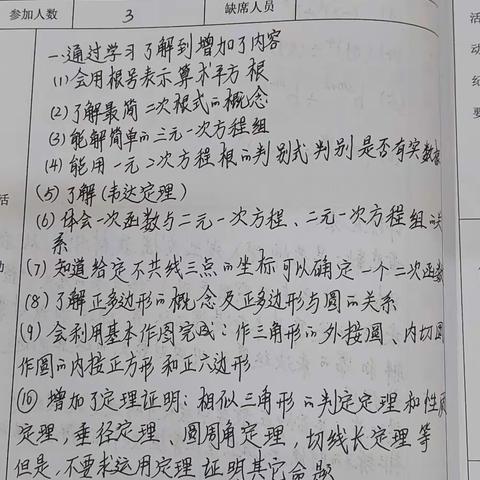 参加人数 3 缺席人员 活
一.通过学习了解到增加了内容 动
(1)会用根号表示算术平方根 纪
(2)了解最简二次根式的概念 要
(3)能解简单的三元一次方程组
(4)能用一元二次方程根的判别式判别是否有实数根
活 (5)了解(韦达定理)
(6)体会一次函数与二元一次方程、二元一次方程组的关
动 系
(7)知道给定不共线三点的坐标可以确定一个二次函数
(8)了解正多边形的概念及正多边形与圆的关系
(9)会利用基本作图完成：作三角形的外接圆、内切圆
作圆的内接正方形和正六边形
(10)增加了定理证明：相似三角形的判定定理和性质
定理，垂径定理、圆周角定理，切线长定理等
但是，不要求运用定理证明其它命题